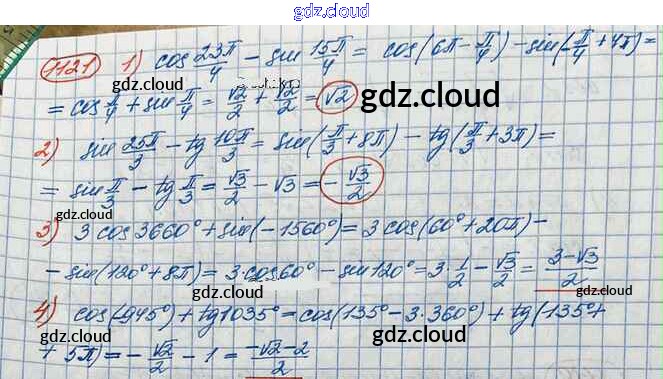 gdz.cloud
1121 1) cos 23π/4 - sin 15π/4 = cos(6π - π/4) - sin(-π/4 + 4π) =
= cos π/4 + sin π/4 = √2/2 + √2/2 = √2 gdz.cloud
gdz.cloud
2) sin 25π/3 - tg 10π/3 = sin(π/3 + 8π) - tg(π/3 + 3π) =
= sin π/3 - tg π/3 = √3/2 - √3 = - √3/2
gdz.cloud gdz.cloud
3) 3 cos 3660° + sin(-1560°) = 3 cos(60° + 20π) -
gdz.cloud
- sin(120° + 8π) = 3·cos 60° - sin 120° = 3·1/2 - √3/2 = (3-√3)/2
gdz.cloud gdz.cloud
4) cos(-945°) + tg 1035° = cos(135° - 3·360°) + tg(135° +
gdz.cloud
+ 5π) = - √2/2 - 1 = (-√2-2)/2
gdz.cloud